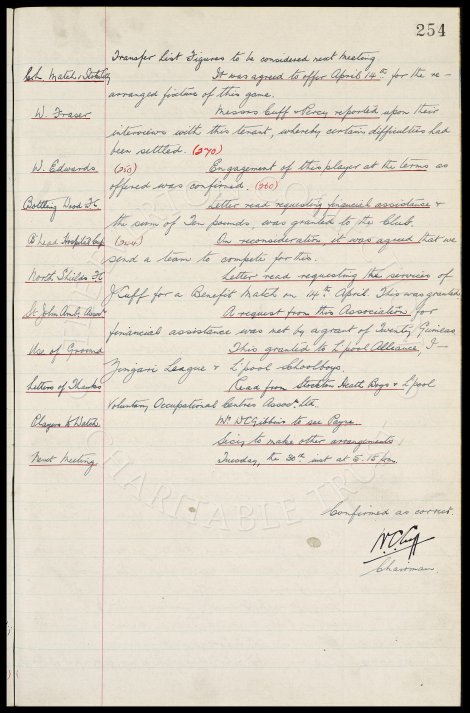 254
Transfer List Figures to be considered next meeting
C.L. Match v Stoke City It was agreed to offer April 14th for the re-
arranged fixture of this game.
W. Fraser Messrs Cuff & Percy reported upon their
interviews with this tenant, whereby certain difficulties had
been settled. (270)
W. Edwards (250) Engagement of this player at the terms as
offered was confirmed. (260)
Letter read requesting financial assistance &
the sum of Ten pounds was granted to the Club.
B'head Hospital Cup (244) On reconsideration it was agreed that we
send a team to compete for this.
North Shields F.C Letter read requesting the services of
J Caff for a Benefit Match on 14th April. This was granted
St John Amb. Assocn A request from this Association for
financial assistance was met by a grant of Twenty Guineas
Use of Ground This granted to L'pool Alliance, I-
Zingari League & L'pool Schoolboys
Letters of Thanks Read from Stockton Heath Boys & L'pool
Voluntary Occupational Centres Assocn. Ltd.
Players to Watch Mr W C Gibbins to see Payne
Secy to make other arrangements
Next Meeting Tuesday, the 30th inst at 5.15 p.m.
Confirmed as correct.
W.C. Cuff
Chairman
CHARITABLE TRUST